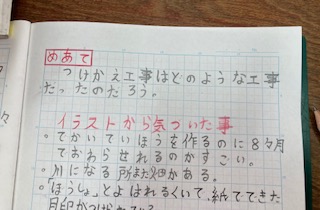 めあて
つけかえ工事はどのような工事
だったのだろう。
イラストから気づいた事
。でかいていほうを作るのに8ヶ月
でおわらせれるのがすごい。
。川になる所また畑がある。
。「ほうしょ」とよばれるくいで、紙でできた
目印がつけられている